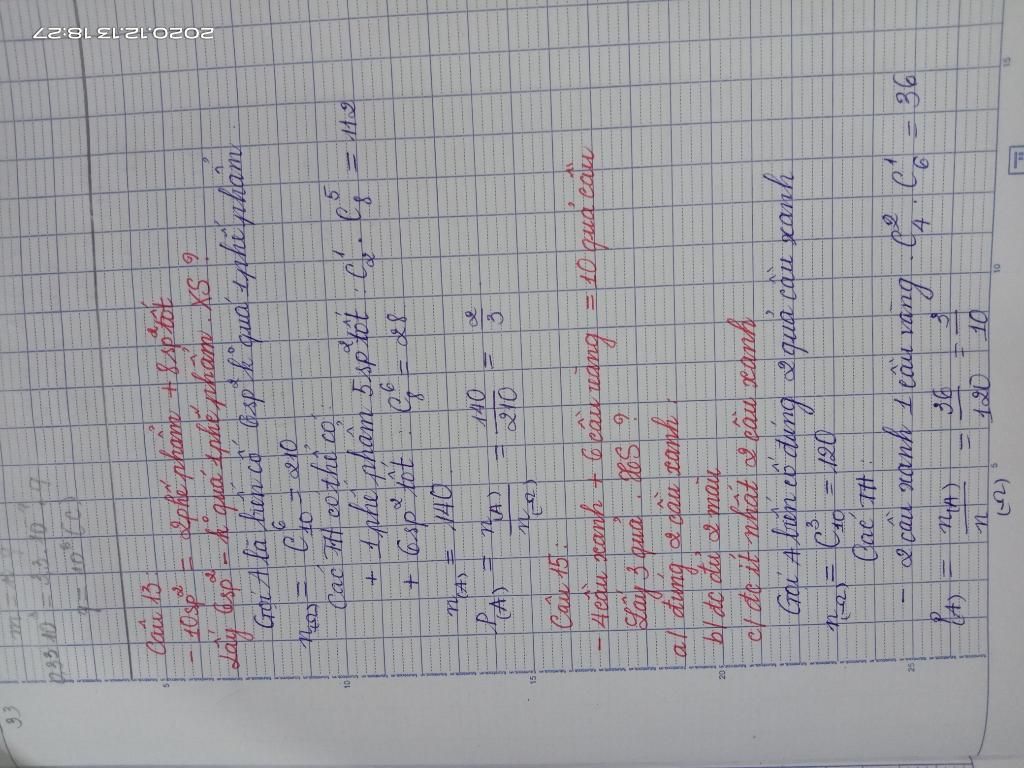 2020.12.13 18:27
33
Câu 13:
- 10 sp² = 2 phế phẩm + 8 sp² tốt
Lấy 6 sp² - k° quá 1 phế phẩm. XS?
Gọi A là biến cố 6 sp² k° quá 1 phế phẩm.
n(Ω) = C⁶₁₀ = 210
Các TH có thể có:
+ 1 phế phẩm 5 sp² tốt: C¹₂ . C⁵₈ = 112
+ 6 sp² tốt: C⁶₈ = 28
n(A) = 140
P(A) = n(A)/n(Ω) = 140/210 = 2/3
Câu 15:
- 4 cầu xanh + 6 cầu vàng = 10 quả cầu
Lấy 3 quả. XS?
a/ đúng 2 cầu xanh:
b/ đc đủ 2 màu
c/ đc ít nhất 2 cầu xanh
Gọi A biến cố đúng 2 quả cầu xanh
n(Ω) = C³₁₀ = 120
Các TH:
- 2 cầu xanh 1 cầu vàng: C²₄ . C¹₆ = 36
P(A) = n(A)/n(Ω) = 36/120 = 3/10